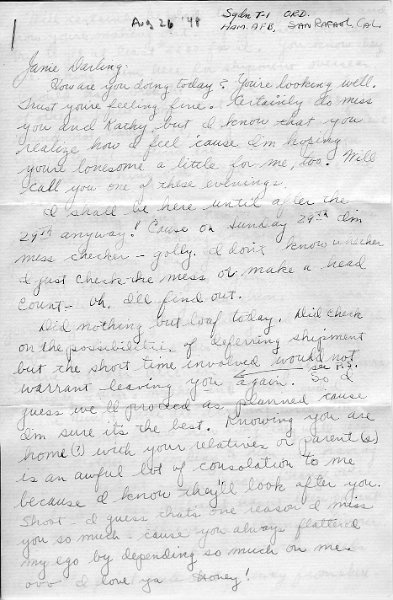 Aug 26 '48
Sqdn T-1 ORD.
HAM. A.F.B. SAN RAFAEL, CAL
Janie Darling:
How are you doing today? You're looking well.
Trust you're feeling fine. Certainly do miss
you and Kathy but I know that you
realize how I feel cause I'm hoping
you're lonesome a little for me, too. Will
call you one of these evenings.
I shall be here until after the
29th anyway! Cause on Sunday 29th I'm
mess checker - golly. I don't know whether
I just check the mess or make a head
count - oh, I'll find out.
Did nothing but loaf today. Did check
on the possibilities of deferring shipment
but the short time involved would not
warrant leaving you again. So I
guess we'll proceed as planned cause
I'm sure its the best. Knowing you are
home(?) with your relatives or parent(s)
is an awful lot of consolation to me
because I know they'll look after you.
Shoot - I guess thats one reason I miss
you so much - cause you always flattered
my ego by depending so much on me.
I love ya Honey!